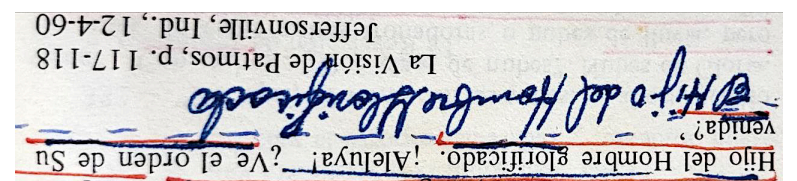 Hijo del Hombre glorificado. ¡Aleluya! ¿Ve el orden de Su
venida?’
El Hijo del Hombre Glorificado
La Visión de Patmos, p. 117-118
Jeffersonville, Ind., 12-4-60